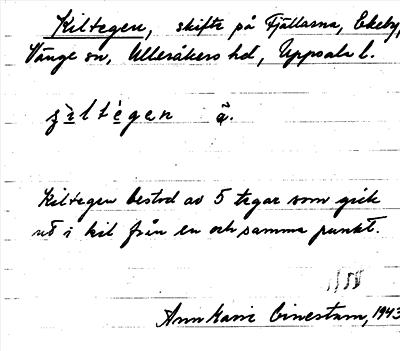 Kiltegen, skifte på Fjällarna, Ekeby,
Vänge sn, Ulleråkers hd, Uppsala l.
Kiltegen bestod av 5 tegar som gick
ut i kil från en och samma punkt.
Ann Marie Einestam, 1943